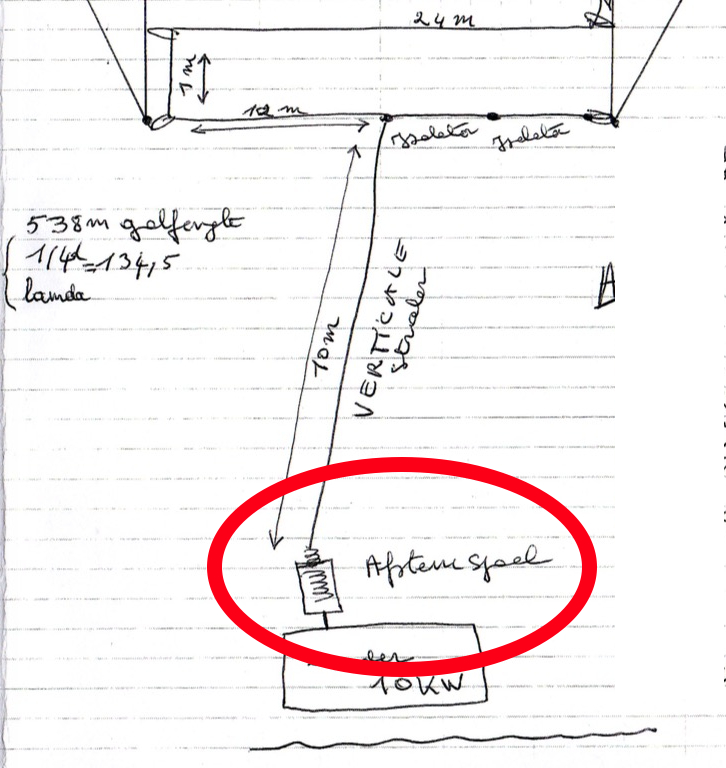 24 m
1m
12 m
Isolator Isolator
538m golflengte
1/4λ=134,5
lamda
10m
VERTICALE
straler
Afstem Spoel
10KW